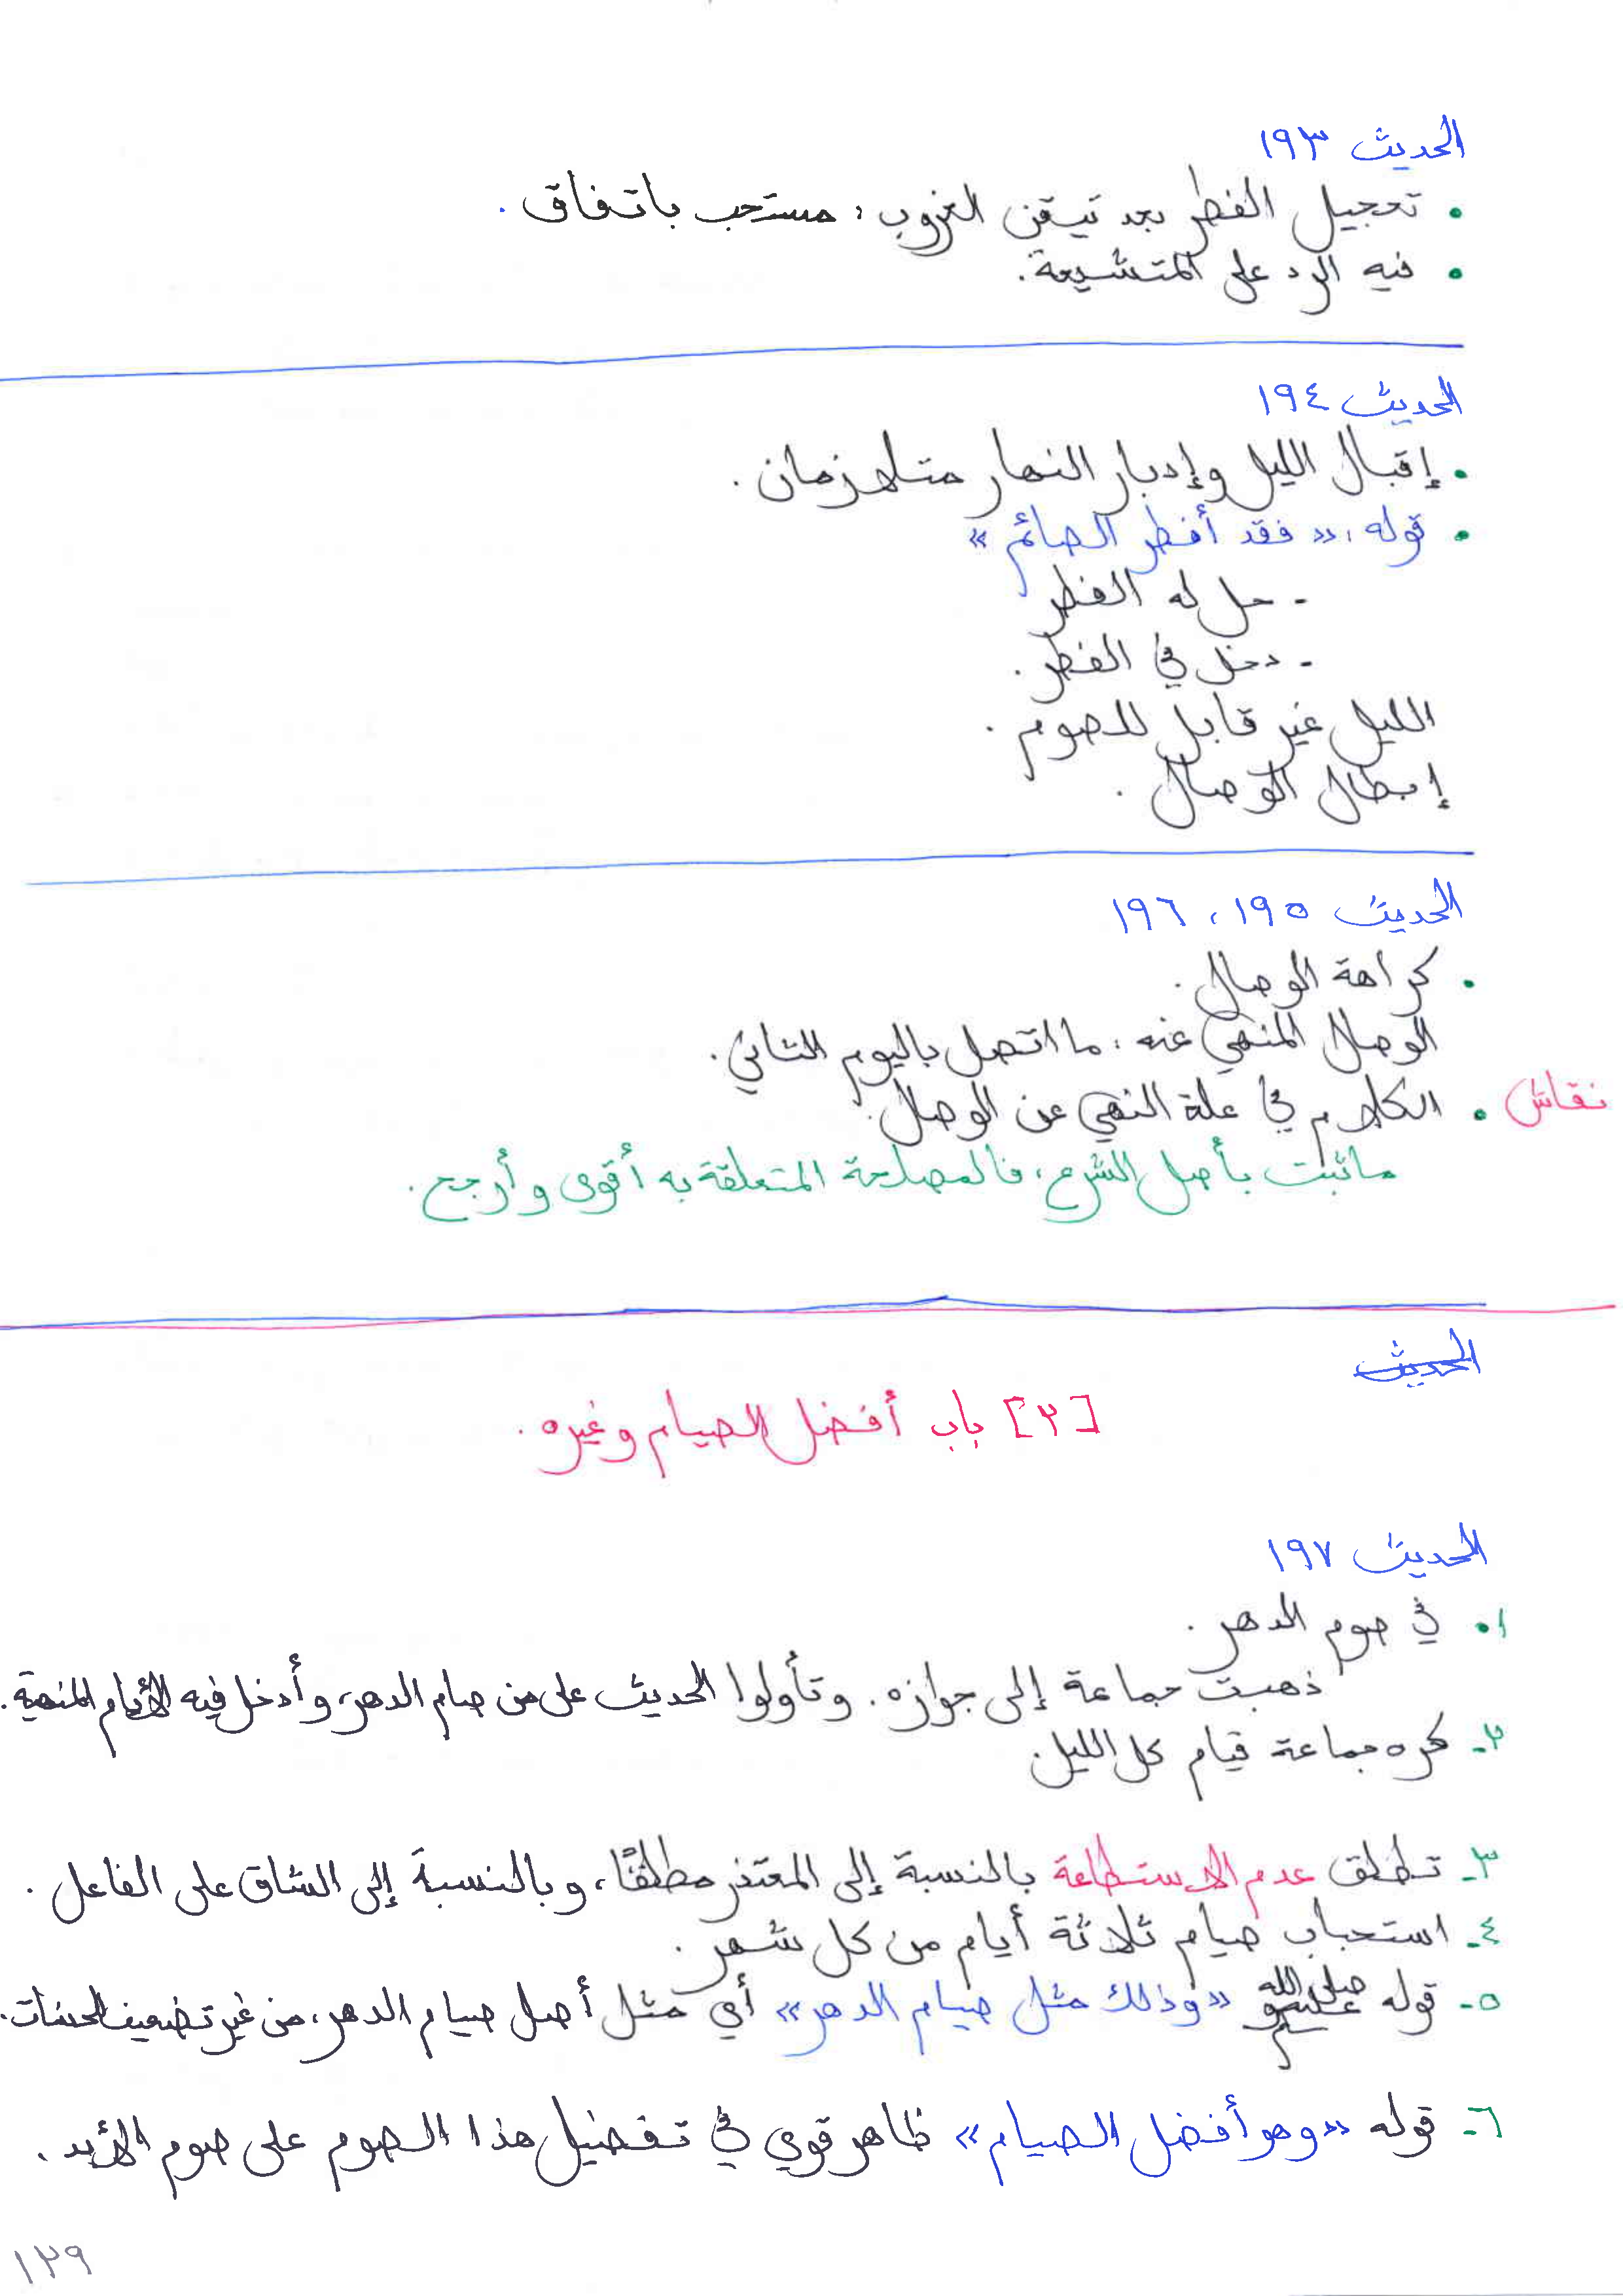 الحديث ١٩٣
• تعجيل الفطر بعد تيقن الغروب: مستحب باتفاق.
• فيه الرد على المتشيعة.
الحديث ١٩٤
• إقبال الليل وإدبار النهار متلازمان.
• قوله: «فقد أفطر الصائم»
- حل له الفطر
- دخل في الفطر.
الليل غير قابل للصوم.
إبطال الوصال.
الحديث ١٩٥، ١٩٦
• كراهة الوصال.
الوصال المنهي عنه: ما اتصل باليوم الثاني.
نقاش • الكلام في علة النهي عن الوصال.
ما ثبت بأصل الشرع، فالمصلحة المتعلقة به أقوى وأرجح.
الحديث
[٢] باب أفضل الصيام وغيره.
الحديث ١٩٧
١• في صوم الدهر.
ذهبت جماعة إلى جوازه. وتأولوا الحديث على من صام الدهر، وأدخل فيه الأيام المنهية.
٢- كره جماعة قيام كل الليل.
٣- تطلق عدم الاستطاعة بالنسبة إلى المعتذر مطلقًا، وبالنسبة إلى الشاق على الفاعل.
٤- استحباب صيام ثلاثة أيام من كل شهر.
٥- قوله صلى الله عليه وسلم «وذلك مثل صيام الدهر» أي مثل أصل صيام الدهر، من غير تضعيف الحسنات.
٦- قوله «وهو أفضل الصيام» ظاهر قوي في تفضيل هذا الصوم على صوم الأبد.
١٢٩